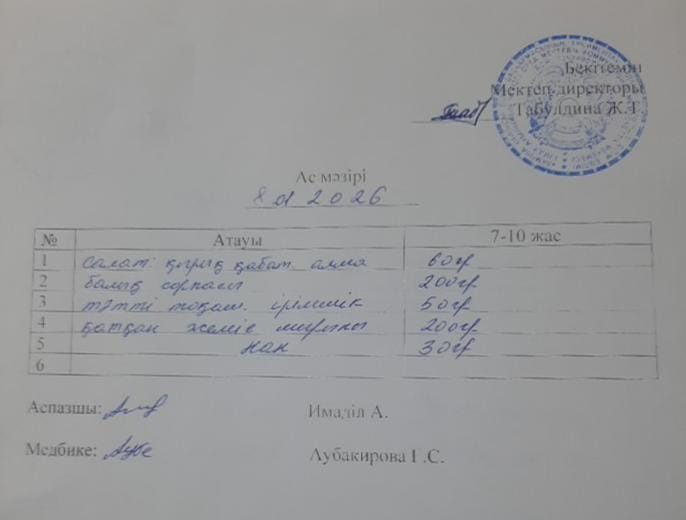 Бекітемін
Мектеп директоры
Табулдина Ж.Т.
Ас мәзірі
2026
№ Атауы 7-10 жас
1 Салат: қырық қабат. алма 60гр
2 балық сорпасы 200гр
3 тәтті тоқаш. ірімшік 50гр
4 қатқан жеміс шырыны 200гр
5 нан 30гр
6
Аспазшы: Имаділ А.
Медбике: Аубакирова Г.С.